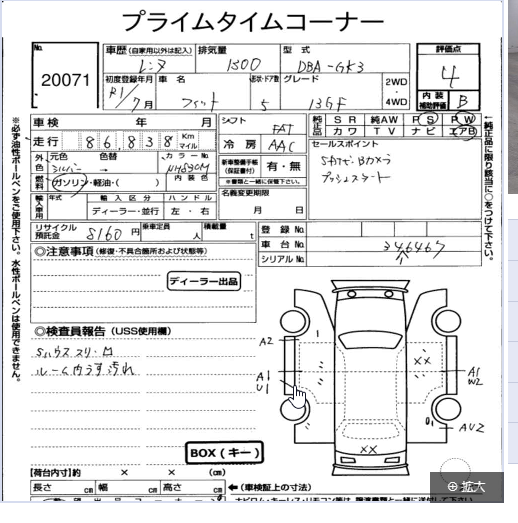 プライムタイムコーナー
No. 20071
車歴 (自家用以外は記入) 排気量 型式 評価点
レンタ 1300 DBA-GK3 4
初度登録年月 車名 形状・ドア数 グレード 2WD・4WD 内装補助評価 B
R1/7月 フィット 5 13GF
車検 年 月 シフト 純正品 SR 純AW PS PW
走行 86,838 Km マイル FAT カワ TV ナビ エアB
外色 元色 色替 カラーNo. 冷房 AAC セールスポイント
シルバー NH830M 新車整備手帳(保証書付) 有・無
燃料 ガソリン・軽油・( ) 内装色 ※書類と一緒に保管下さい。 プッシュスタート
輸入車用 年式 輸入区分 ハンドル 名義変更期限
ディーラー・並行 左・右 月 日
リサイクル預託金 8160円 乗車定員 人 積載量 t 登録No.
車台No. 346467
シリアルNo.
◎注意事項 (修復・不具合箇所および状態等)
ディーラー出品
◎検査員報告 (USS使用欄)
Sハウススリ・凹
ルーム内うす汚れ
A2
A1
U1
A1
W2
AU2
××
××
BOX(キー)
【荷台内寸】約 × × (cm)
長さ cm 幅 cm 高さ cm ←(車検証上の寸法)
※必ず油性ボールペンをご使用下さい。水性ボールペンは使用できません。
←純正品に限り該当に○をつけて下さい。
拡大